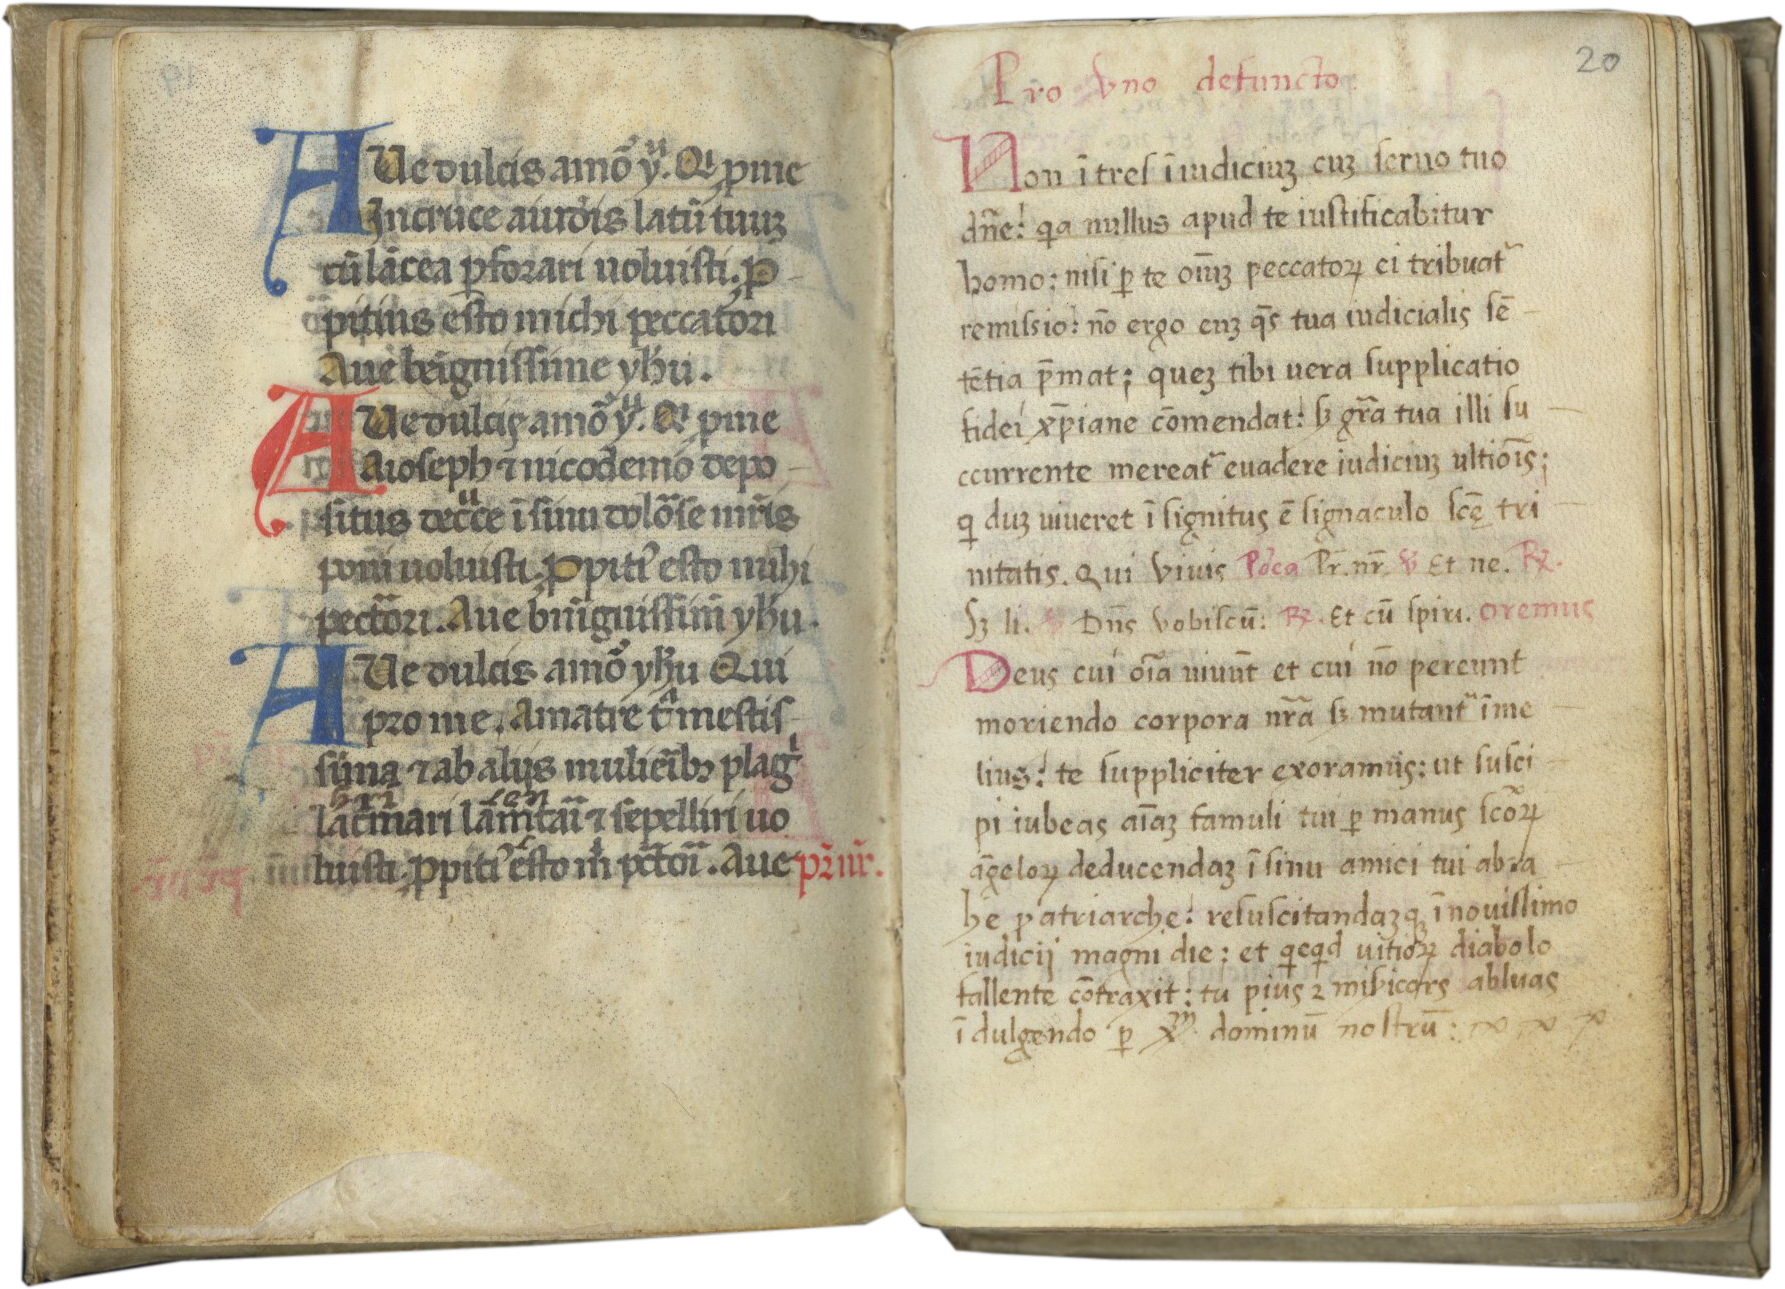 AUe dulcis amo᷑ y᷑. Qi ꝓ me
In cruce a iudeis latũ tuuȝ
cũ lãcea ꝑforari uoluisti. Ꝓ-
pitius esto michi peccatori
Aue beĩgnissime yħu.
AUe dulcis amo᷑ y᷑. Qi ꝓ me
A ioseph ⁊ nicodemo depo-
situs ĩ sinu dolõse mr̃is
poni uoluisti. Ꝓpitiꝰ esto mihi
pecc̃tori. Aue bñignissim̃ yħu.
AUe dulcis amo᷑ yħu Qui
pro me. A matre mestis-
sima ⁊ ab alijs mulieribȝ
lac̃mari ⁊ sepelliri uo
luisti. Ꝓpitiꝰ esto m̃ pc̃tori. Aue pr̃ nr̃.
20
Pro vno defuncto
Non ĩtres ĩ iudiciuȝ cuȝ seruo tuo
dñe: qa nullus apud te iustificabitur
homo: nisi ꝑ te oĩuȝ peccatoꝝ ei tribuat᷑
remissio: nõ ergo euȝ q̃s tua iudicialis sẽ-
tẽtia p̃mat; queȝ tibi uera supplicatio
fidei xp̃iane cõmendat: sȝ gr̃a tua illi su-
ccurrente mereat᷑ euadere iudiciuȝ ultiõis;
q duȝ uiueret ĩ signitus ẽ signaculo scẽ tri-
nitatis. Qui viuis Pr̃. nr̃. ℣ Et ne. ℞.
Sȝ li. ℣ Dñs vobiscũ: ℞. Et cũ spiri. oremus
Deus cui oĩa uiuũt et cui nõ pereunt
moriendo corpora nr̃a sȝ mutant᷑ ĩ me-
lius: te suppliciter exoramus: ut susci-
pi iubeas aĩaȝ famuli tui ꝑ manus scõꝝ
ãgeloꝝ deducendaȝ ĩ sinu amici tui abra-
he patriarche: resuscitandaȝqȝ ĩ nouissimo
iudicij magni die: et qcqd uitioꝝ diabolo
fallente cõtraxit: tu pius ⁊ misicors abluas
ĩ dulgendo ꝑ xm̃. dominũ nostrũ: